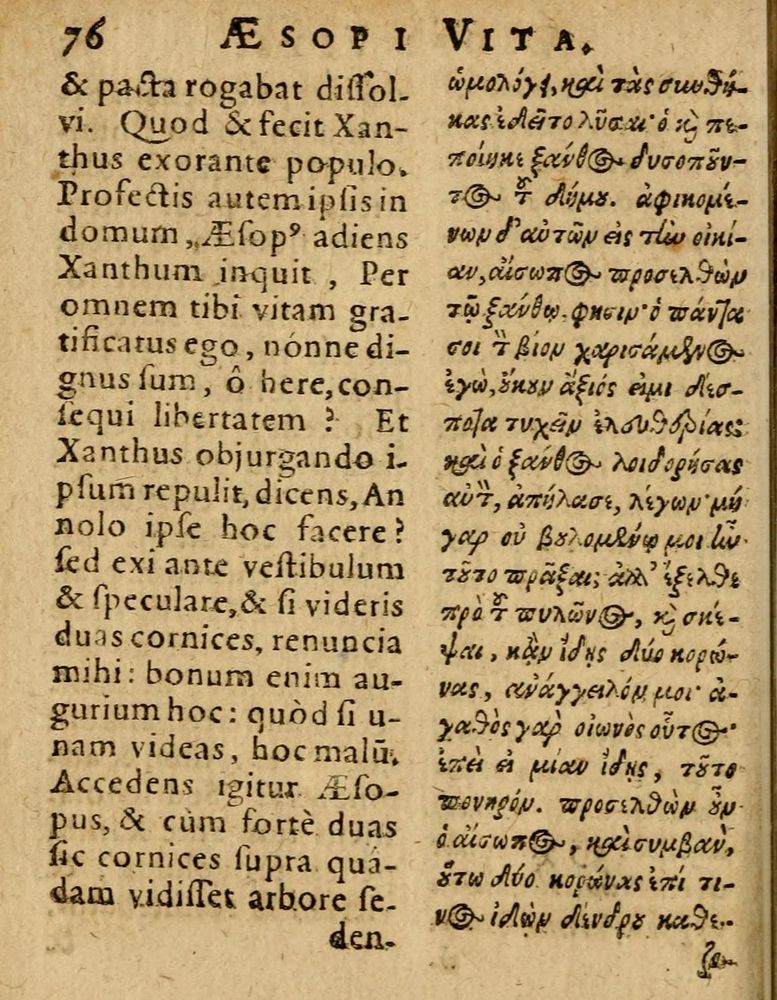 76 ÆSOPI VITA.
& pacta rogabat diſſol-
vi. Quod & fecit Xan-
thus exorante populo.
Profectis autem ipſis in
domum, Æſopꝰ adiens
Xanthum inquit, Per
omnem tibi vitam gra-
tificatus ego, nónne di-
gnus ſum, ô here, con-
ſequi libertatem? Et
Xanthus objurgando i-
pſum repulit, dicens, An
nolo ipſe hoc facere?
ſed exi ante veſtibulum
& ſpeculare, & ſi videris
duas cornices, renuncia
mihi: bonum enim au-
gurium hoc: quòd ſi u-
nam videas, hoc malū.
Accedens igitur Æſo-
pus, & cùm fortè duas
ſic cornices ſupra quá-
dam vidiſſet arbore ſe-
den-
ὡμολόγει, καὶ τὰς συνθή-
κας ἐδεῖτο λῦσαι· ὁ καὶ πε-
ποίηκε ξανθος δυσοποῦν-
τος τοῦ δήμου. ἀφικομέ-
νων δ' αὐτῶν εἰς τὴν οἰκί-
αν, αἴσωπος προσελθὼν
τῷ ξάνθῳ. φησιν· ὁ πάντα
σοι τὸν βίον χαρισάμενος
ἐγὼ, οὔκουν ἄξιός εἰμι δέσ-
ποτα τυχεῖν ἐλευθερίας;
καὶ ὁ ξανθος λοιδορήσας
αὐτὸν, ἀπήλασε, λέγων· μὴ
γαρ οὐ βουλομένῳ μοι ἦν
τοῦτο πρᾶξαι; ἀλλ' ἔξελθε
πρὸ τοῦ πυλῶνος, καὶ σκέ-
ψαι, κἂν ἴδῃς δύο κορώ-
νας, ανάγγειλόν μοι· ἀ-
γαθὸς γὰρ οἰωνὸς οὗτος·
ἐπεὶ εἰ μίαν ἴδῃς, τοῦτο
πονηρόν. προσελθὼν οὖν
ὁ αἴσωπος, καὶ συμβὰν,
οὕτω δύο κορώνας ἐπί τι-
νος ἰδὼν δένδρου καθε-